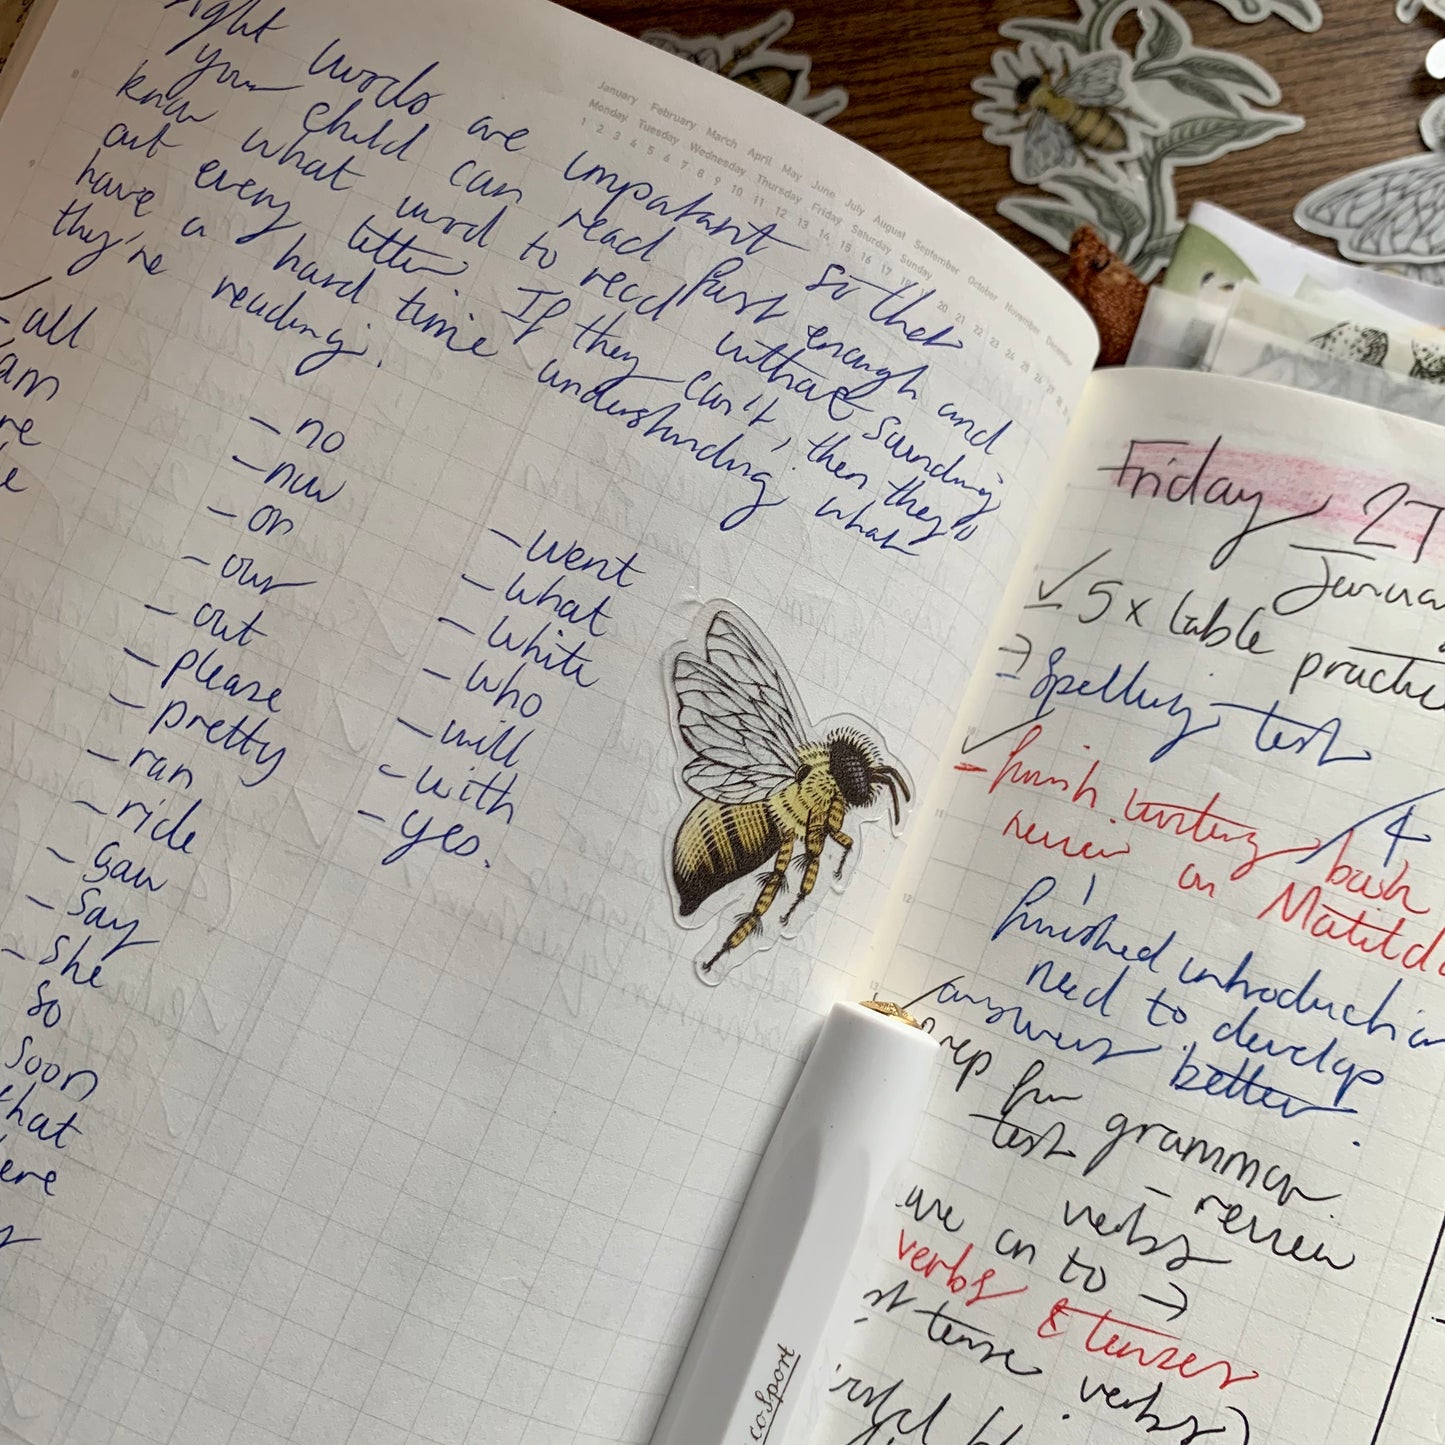 words are important so that
your child can read fast enough and
know what word to read without sounding
out every letter. If they can't, then they'll
have a hard time understanding what
they're reading.
- all
am
- no
- now
- on
- our
- out
- please
- pretty
- ran
- ride
- saw
- say
- she
so
soon
that
- went
- what
- white
- who
- will
- with
- yes.
January February March April May June July August September October November December
Monday Tuesday Wednesday Thursday Friday Saturday Sunday
1 2 3 4 5 6 7 8 9 10 11 12 13 14 15 16 17 18 19 20 21 22 23 24 25 26 27 28
8
9
Friday, 27
✓ 5 x table practice
→ Spelling test
✓ - finish writing book
review on Matilda
finished introduction
need to develop
answers better.
prep for grammar
test - review
verbs
are on to →
verbs & tenses
tense verbs)
11
12
13
coSport